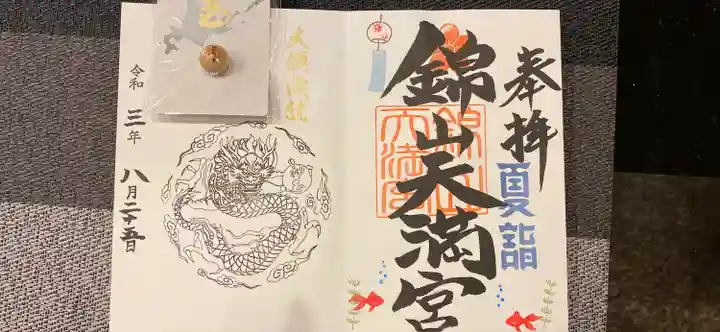 奉拝
夏詣
錦山天満宮
錦山
天満宮
令和三年八月二十五日